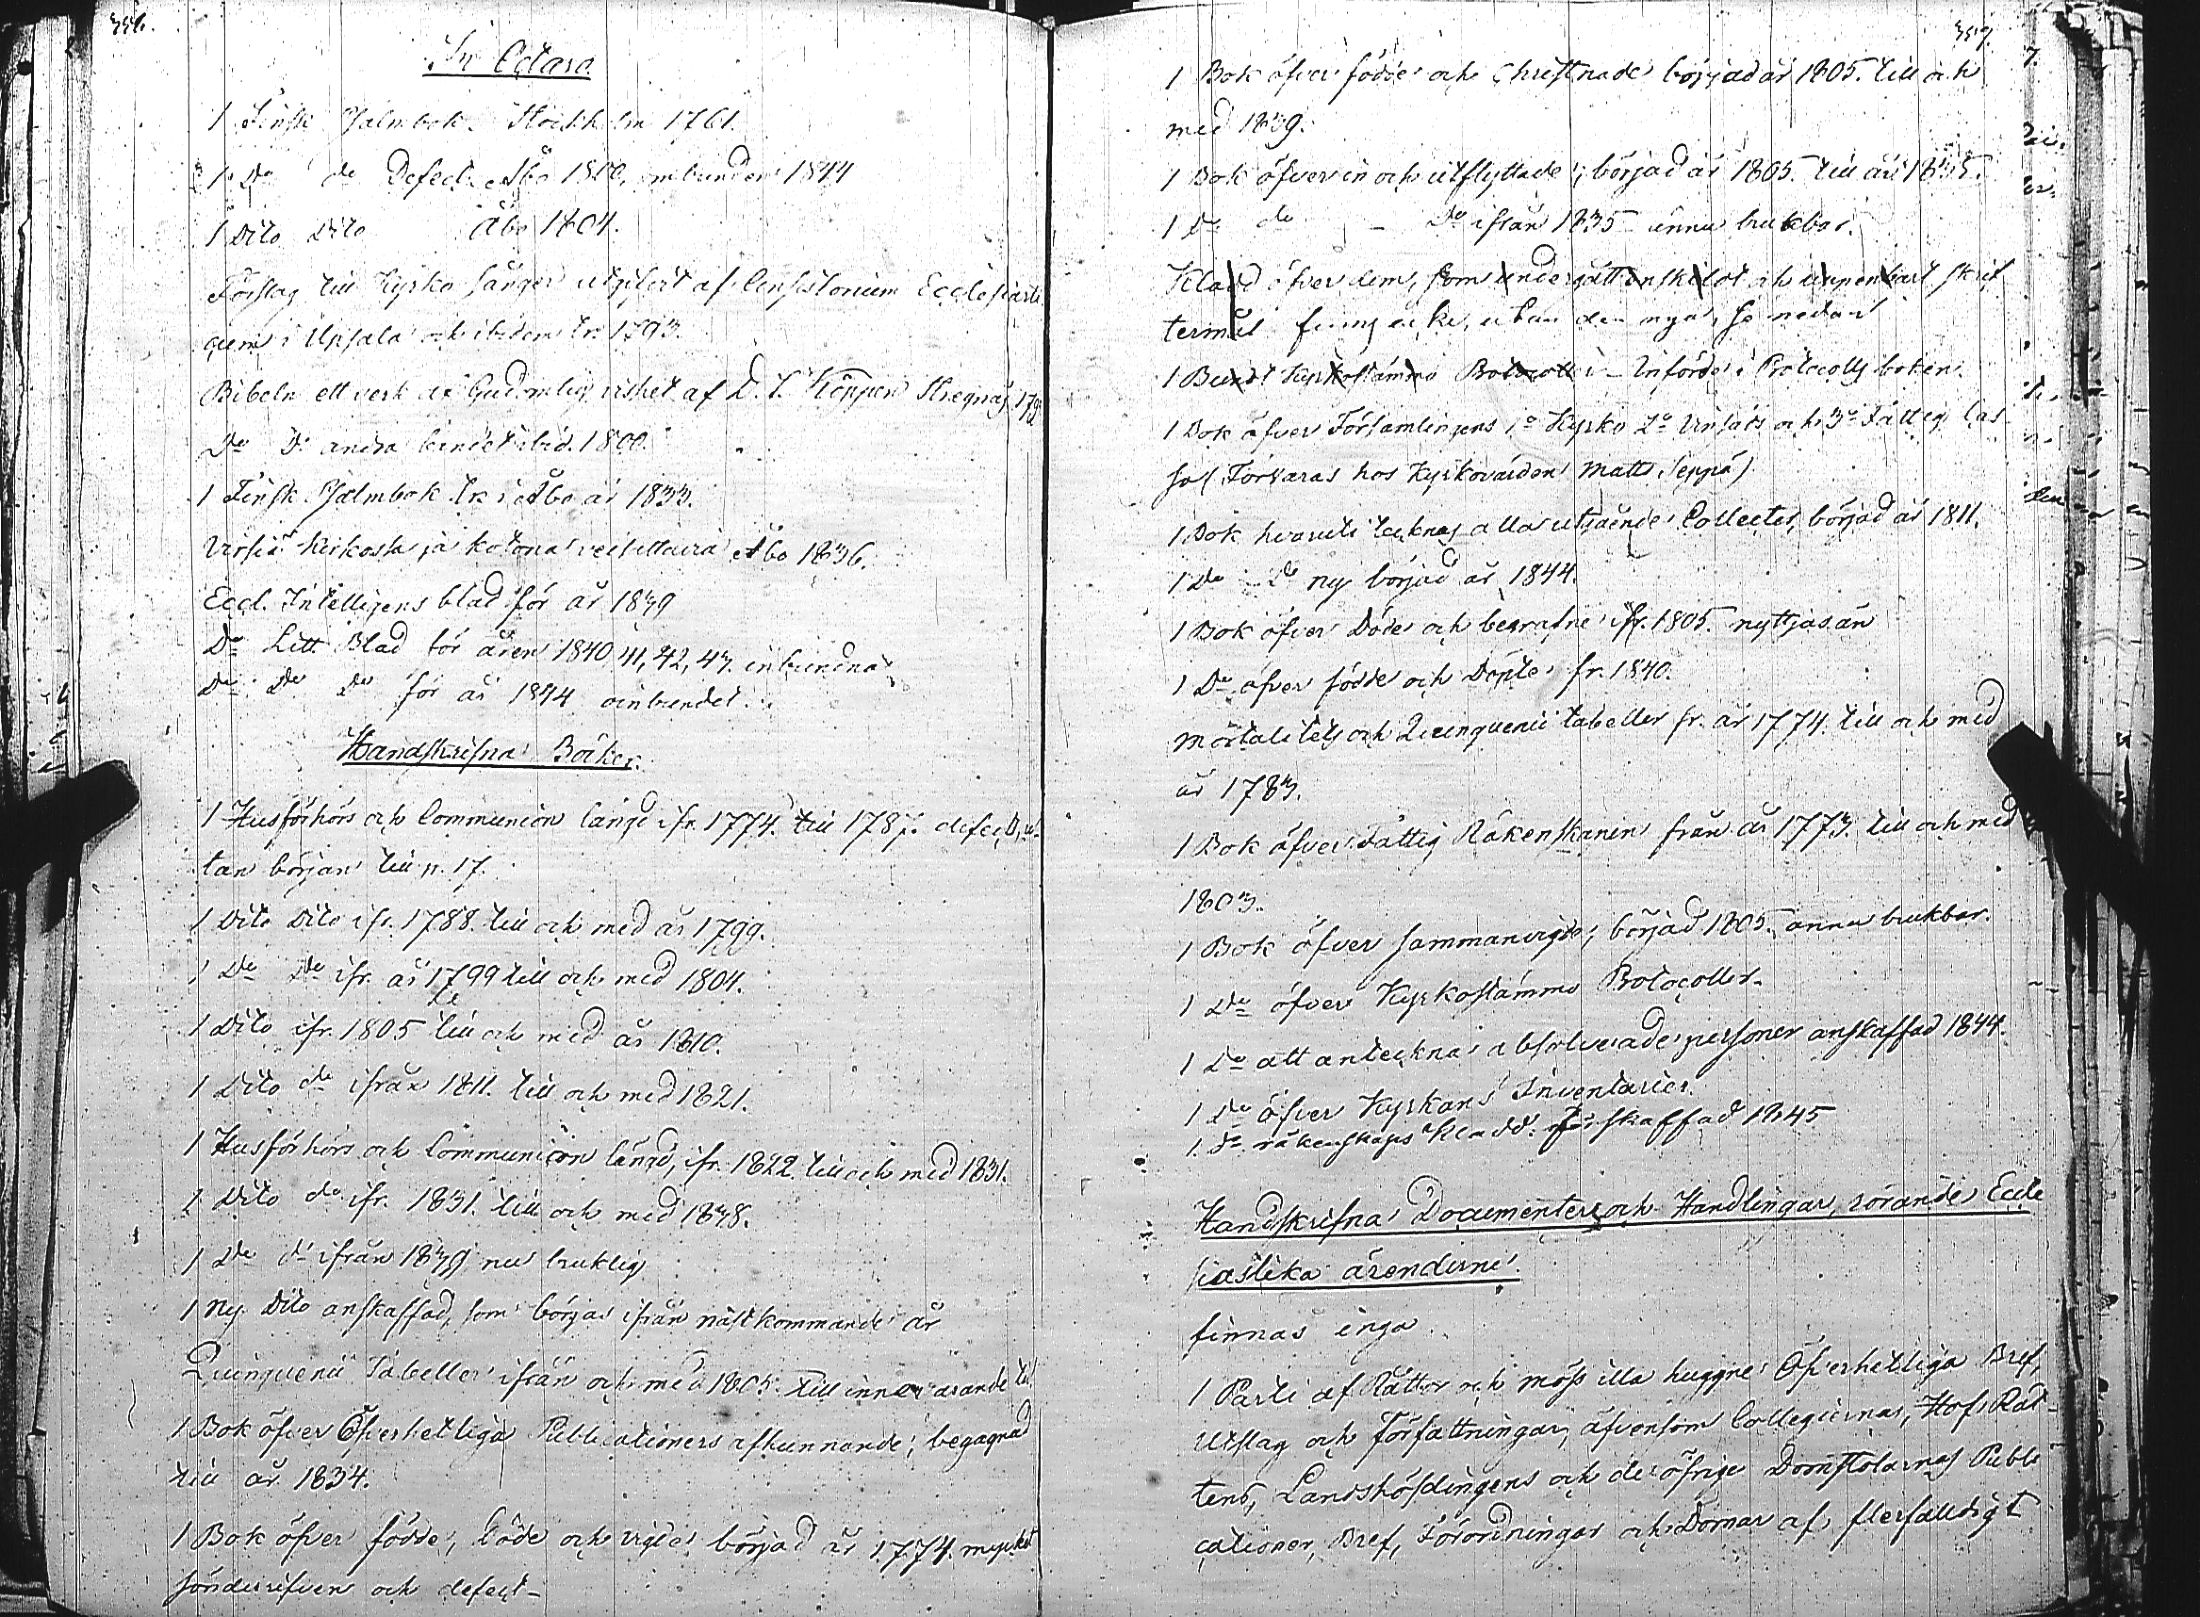 356.
In Octavo
1 Finsk Psalmbok. Stockholm 1761.
1 Do do Defect. Åbo 1800, ombunden 1844
1 Dito Dito Åbo 1804.
Förslag till Kyrko sånger utgifvit af Consistorium Ecclesiasti
cum i Upsala och ibidem tr. 1793.
Bibeln ett verk af Gudomlig vishet af D. T. Köppen Stregnäs 179
Do Do andra bandet ibid. 1800.
1 Finsk Psalmbok tr. i Åbo år 1833.
Virsiä Kirkosha ja kotona veisattavia Åbo 1836.
Eccl. Intelligens blad för år 1839
Do Litt. Blad för åren 1840, 41, 42, 43. inbundna
Do Do Do för år 1844 oinbundet.
Handskrifna Böcker.
1 Husförhörs och Communion längd ifr. 1774. till 1787. defect, u-
tan början till p. 17.
1 Dito Dito ifr. 1788. till och med år 1799.
1 Do Do ifr. år 1799 till och med 1804.
1 Dito ifr. 1805 till och med år 1810.
1 Dito do ifrån 1811. till och med 1821.
1 Husförhörs och Communion längd, ifr. 1822. till och med 1831.
1 Dito do ifr. 1831. till och med 1838.
1 Do do ifrån 1839 nu bruklig
1 Ny Dito anskaffad, som börjas ifrån nästkommande år
Quinquenii Tabeller ifrån och med 1805. till innevarande tid
1 Bok öfver Öfverhetliga Publicationers afkunnande, begagnad
till år 1834.
1 Bok öfver födde, döde och vigde börjad år 1774. mycket
sönderrifven och defect-
357.
1 Bok öfver födde och Christnade börjad år 1805. till och
med 1839.
1 Bok öfver in och utflyttade, börjad år 1805. till år 1835.
1 Do do - Do ifrån 1835 ännu brukbar.
Kladd öfver dem, som undergått enskilot och uppenbart skrif
termål finns icke, utan den nya, se nedan
1 Bundt Kyrkostämmo Protocoll - Införde i Protocolls boken.
1 Bok öfver Församlingens 1o Kyrko 2o Vinsäds och 3o Fattig Cas
sa (Förvaras hos Kyrkovärden Matts Seppä)
1 Bok hvaruti tecknas alla utgående Collecter, börjad år 1811.
1 Do Do ny börjad år 1844.
1 Bok öfver Döde och begrafne ifr. 1805. nyttjas än
1 Do öfver födde och Döpte fr. 1840.
Mortalitets och Quinquenii tabeller fr. år 1774. till och med
år 1783.
1 Bok öfver Fattig Räkenskapen från år 1773. till och med
1803.
1 Bok öfver sammanvigde, börjad 1805. ännu brukbar.
1 Do öfver Kyrkostämmo Protocoller.
1 Do att anteckna absolverade personer anskaffad 1844.
1 Do öfver Kyrkans Inventarier.
1. Do räkenskaps Kladd. skaffad 1845
Handskrifna Documenter och Handlingar, rörande Eccle
siastika ärenderne.
finnas inga
1 Parti af Råttor och möss illa huggne Öfverhetliga Bref,
Utslag och Författningar, äfvensom Collegiernas, Hof Rät-
tens, Landshöfdingens och de öfrige Domstolarnas Publi
cationer, Bref, Förordningar och Domar af flerfalldigt